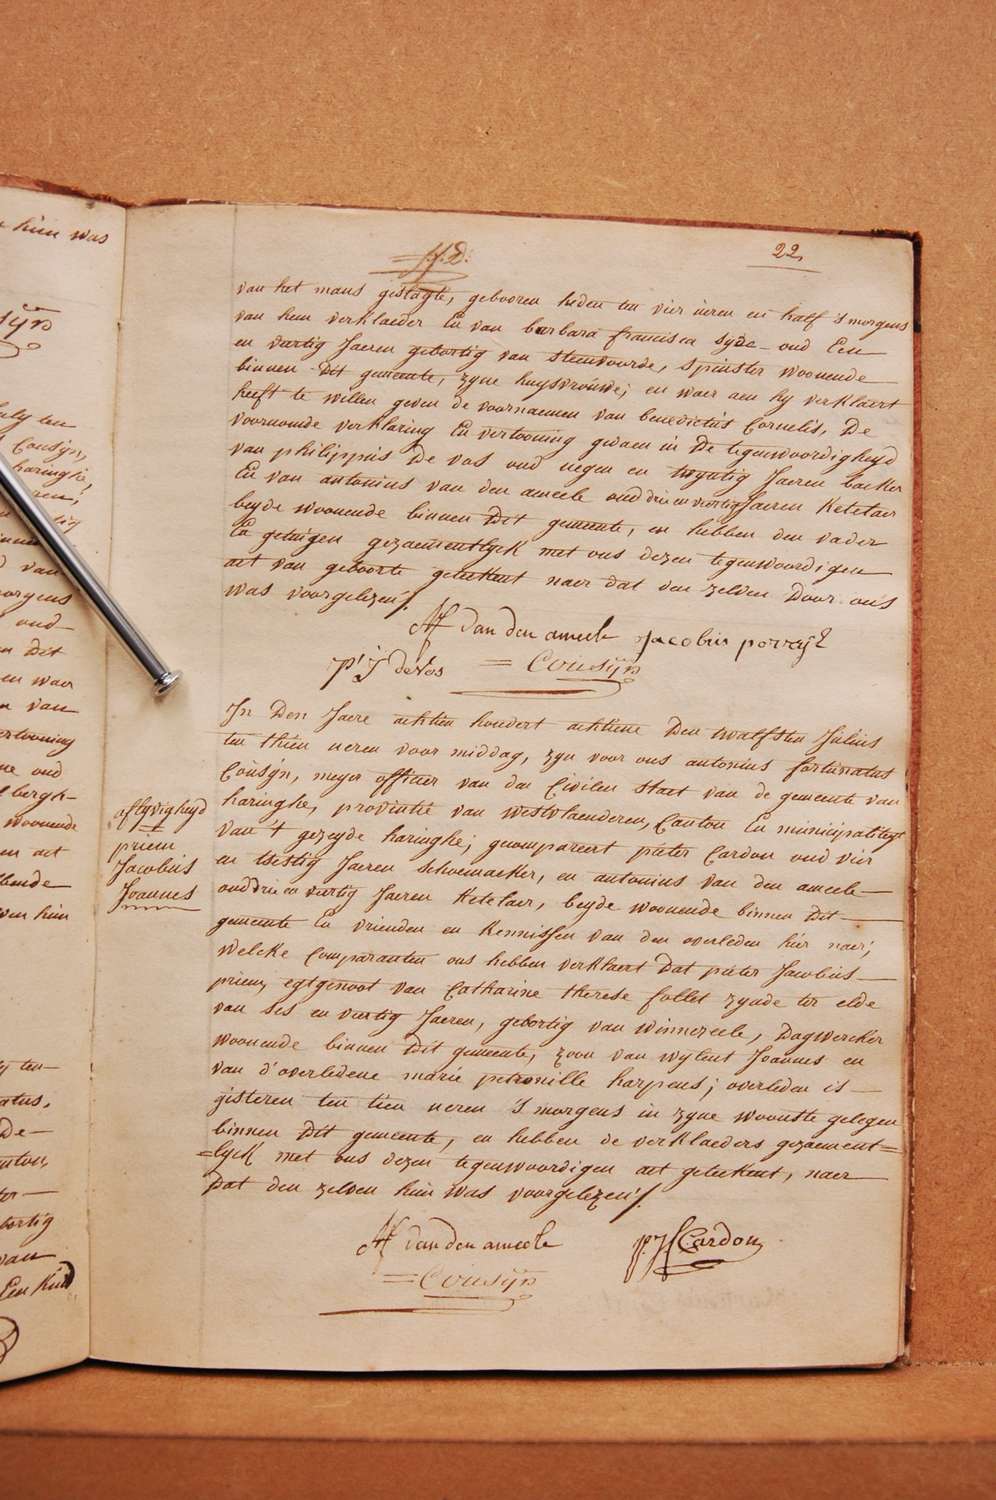 22,
van het mans geslagte, gebooren heden ten vier ueren en half 's morgens
van hem verklaeder En van barbara francisca Syde oud Een
en vertig Jaeren gebortig van steenvoorde, spinster woonende
binnen dit gemeente, zyne huysvrouwe; en waer aen hy verklaert
heeft te willen geven de voornaemen van benedictus Cornelis, De
voornomde verklaring En vertooning gedaen in De tegenwoordigheyd
van philippus De vos oud negen en twyntig Jaeren backer
En van antonius van den ameele oud drie en vertig Jaeren Ketelaer
beyde woonende binnen dit gemeente, en hebben den vader
En getuigen gezaementlyck met ons dezen tegenwoordigen
act van geboorte geteekent naer dat den zelden Door ons
was voorgelezen /.
Van den ameele Jacobus
p: J devos = Cousijn
In Den Jaere achtien hondert achtiene Den twalfsten Julius
ten thien ueren voor middag, zyn voor ons antonius fortunatus
Cousyn, meyer officier van den Civilen staet van de gemeente van
haringhe, provintie van westvlaenderen, Canton En municipaliteyt
van 't gezeyde haringhe; gecompareert pieter Cardon oud vier
en tsestig Jaeren schoenaecker, en antonius van den ameele
oud drie en vertig Jaeren Ketelaer, beyde woonende binnen dit
gemeente En vrienden en Kennissen van den overleden hier naer;
Welcke Comparanten ons hebben verklaert Dat pieter Jacobus
prieur, egtgenoot van Catharine therese follet zynde ter elde
van ses en vertig Jaeren, gebortig van winnezeele, Dagwercker
woonende binnen dit gemeente, zoon van wylent Joannes en
van d'overledene marie petronille harpens; overleden is
gisteren ten tien ueren 's morgens in zyne woonste gelegen
binnen dit gemeente, en hebben de verklaeders gezaement=
=lyck met ons dezen tegenwoordigen act geteekent, naer
Dat den zelven hun was voorgelezen /.
aflyvigheyd
prieur
Jacobus
Joannes
Van den ameele p. J Cardon
= Cousijn